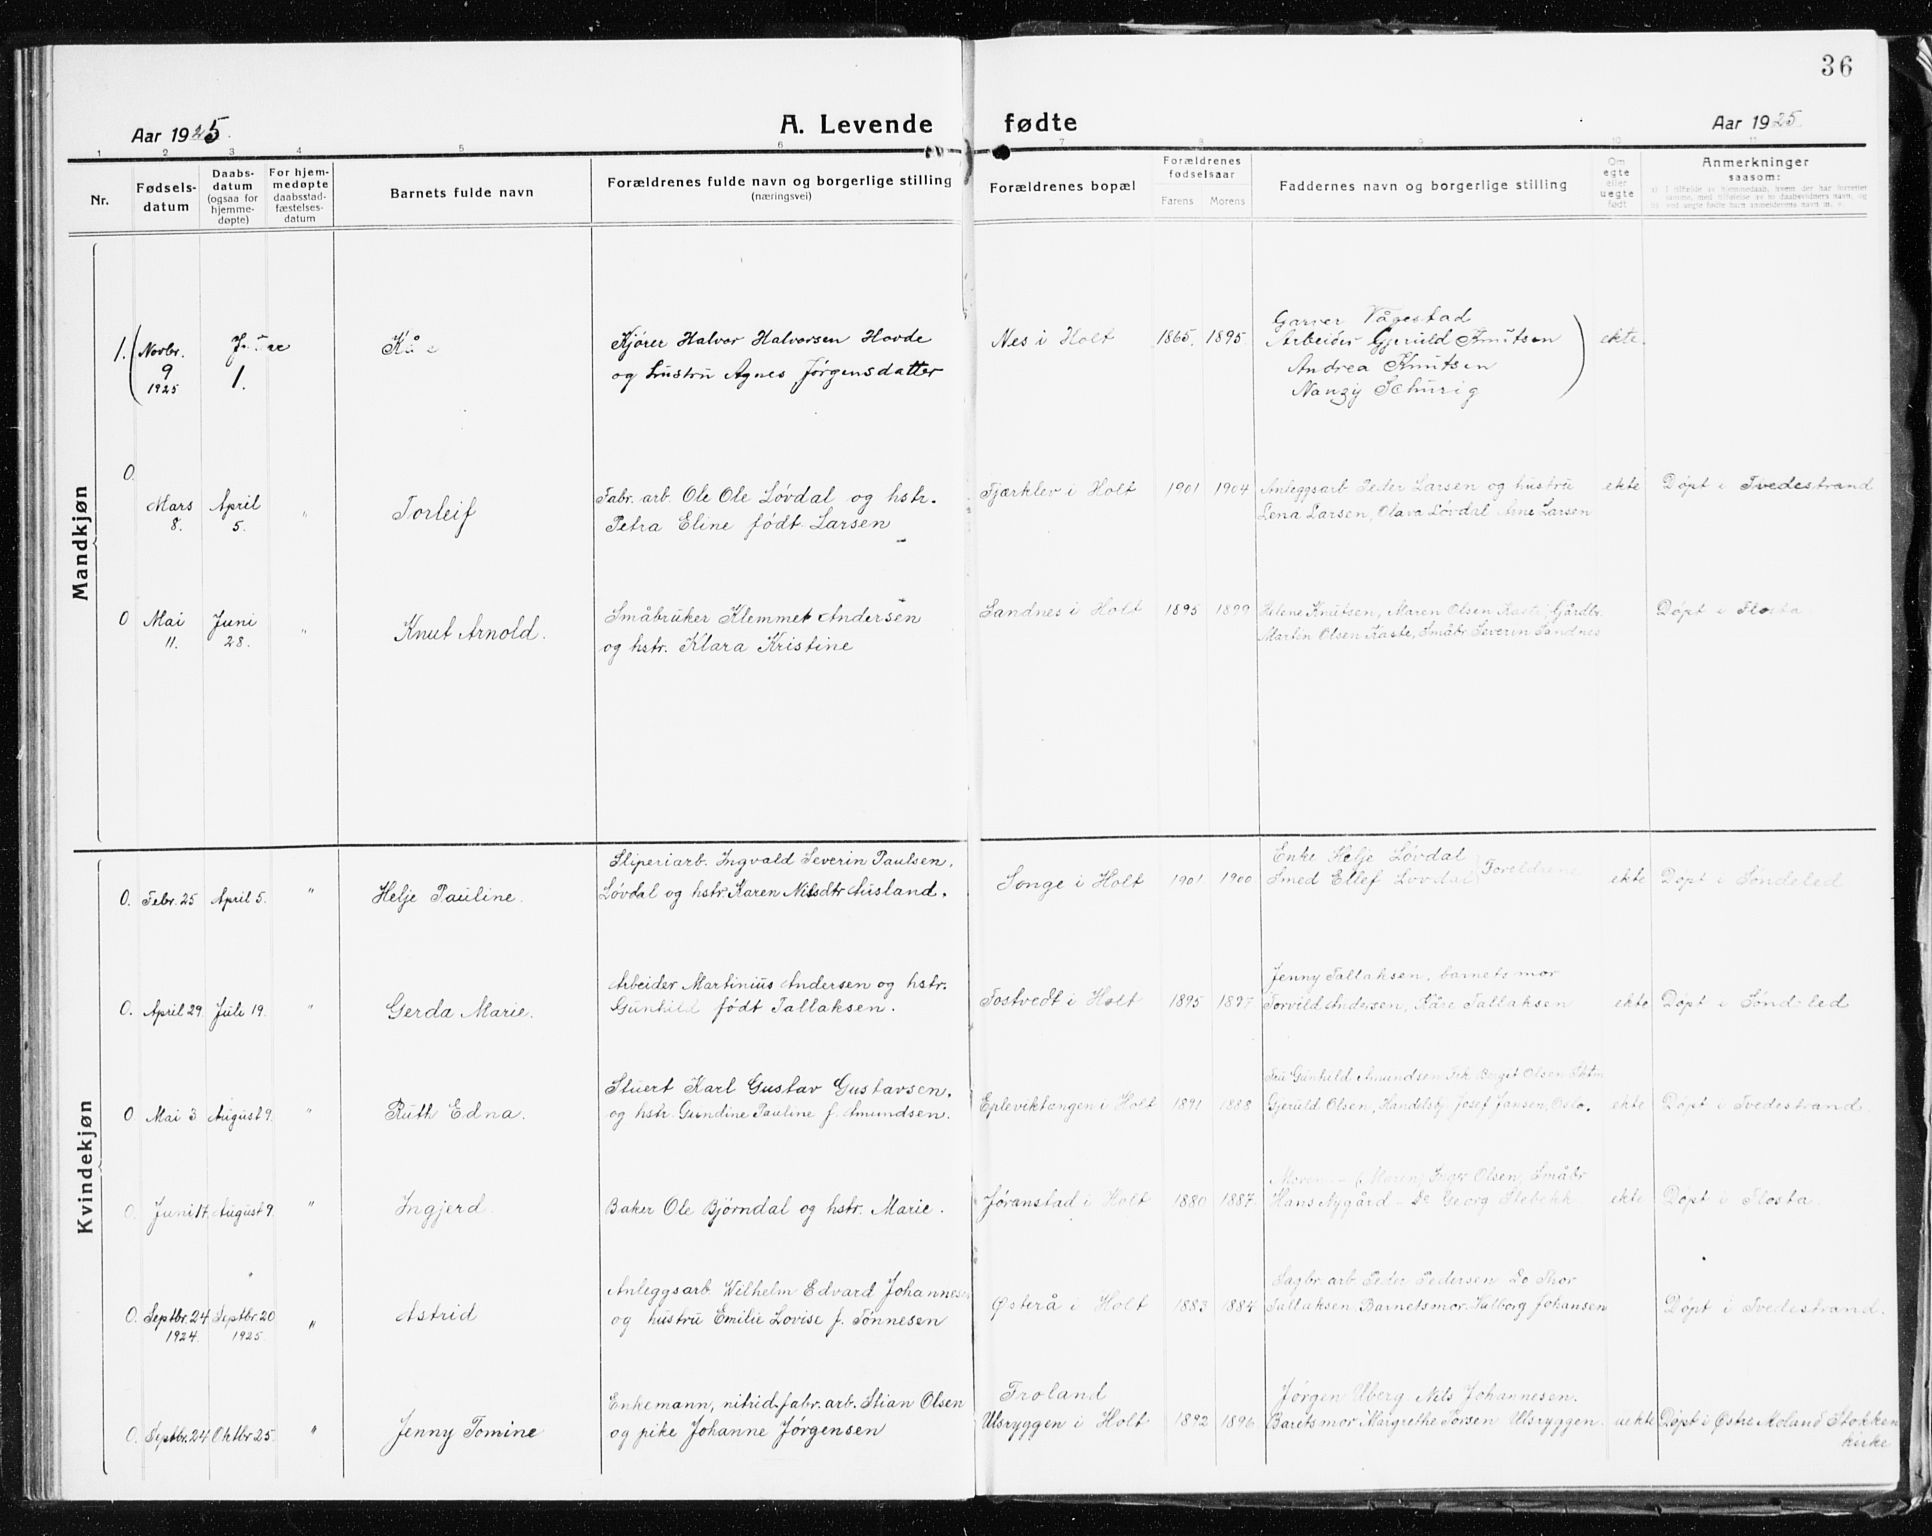 36
Aar 1925.
A. Levende fødte
Aar 1925.
1 2 3 4 5 6 7 8 9 10 11
Nr.
Fødselsdatum
Daabsdatum (ogsaa for hjemmedøpte)
For hjemmedøpte daabsstadfæstelsesdatum
Barnets fulde navn
Forældrenes fulde navn og borgerlige stilling
(næringsvei)
Forældrenes bopæl
Forældrenes fødselsaar
Farens Morens
Faddernes navn og borgerlige stilling
Om egte eller uegte født
Anmerkninger
saasom:
a) I tilfælde av hjemmedaab, hvem der har forrettet
samme, med tilføielse av to daabsvidners navn, og
b) ved uegte fødte barn anmelderens navn m. v.
Mandkjøn
1. Novbr. 9 1925
1.
Kjører Halvor Halvorsen Hovde
og hustru Agnes Jørgensdatter
Nes i Holt 1865. 1895.
Garver Vågestad
Arbeider Gjeruld Knutsen
Andrea Knutsen
Nanzy Schurig
ekte.
0. Mars 8. April 5. " Torleif
Fabr. arb. Ole Ole Løvdal og hstr.
Petra Eline født Larsen
Fjærklev i Holt 1901 1904
Anleggsarb Peder Larsen og hustru
Lena Larsen, Olava Løvdal Arne Larsen
ekte Døpt i Tvedestrand
0 Mai 11. Juni 28. " Knut Arnold.
Småbruker Klemmet Andersen
og hstr. Klara Kristine
Sandnes i Holt 1895 1899
Helene Knutsen, Maren Olsen Kaste, Gårdbr.
Martin Olsen Kaste, Småbr. Severin Sandnes
Døpt i Flosta
Kvindekjøn
0. Febr. 25 April 5. " Helje Pauline.
Sliperiarb. Ingvald Severin Paulsen,
Løvdal og hstr. Karen Nilsdtr Ausland.
Songe i Holt 1901 1900
Enke Helje Løvdal
Smed Ellef Løvdal Foreldrene
ekte Døpt i Søndeled
0. April 29. Juli 19. " Gerda Marie.
Arbeider Martinius Andersen og hstr.
Gunhild født Tallaksen.
Fostvedt i Holt 1895 1897
Jenny Tallaksen, barnets mor
Torvild Andersen, Kåre Tallaksen
ekte Døpt i Søndeled
0 Mai 3 August 9. " Ruth Edna.
Stuert Karl Gustav Gustavsen.
og hstr. Gundine Pauline f. Amundsen.
Epleviktangen i Holt 1891 1888
Fru Gunhild Amundsen Frk. Borgit Olsen
Gjeruld Olsen, Handelsbj. Josef Jansen, Oslo.
ekte Døpt i Tvedestrand.
0. Juni 17. August 9. " Ingjerd.
Baker Ole Bjørndal og hstr. Marie.
Jøranstad i Holt 1880 1887.
Moren - (Maren) Inger Olsen, Småbr
Hans Nygård - Do Georg Stebekk
ekte Døpt i Flosta
0. Septbr. 24 1924. Septbr. 20 1925. " Astrid
Anleggsarb. Wilhelm Edvard Johannesen
og hustru Emilie Lovise f. Tønnesen
Østerå i Holt 1883 1884
Sagbr. arb. Peder Pedersen Do Thor
Tallaksen Barnets mor. Valborg Johansen
Døpt i Tvedestrand.
0. Septbr. 24 Oktbr 25. " Jenny Tomine
Enkemann, nitrid. fabr. arb. Stian Olsen
og pike Johanne Jørgensen
Froland
Ulsryggen i Holt 1892 1896
Jørgen Uberg Nils Johannesen.
Barets mor Margrethe Torsen Ulsryggen.
uekte Døpt i Østre Moland Stokken
kirke